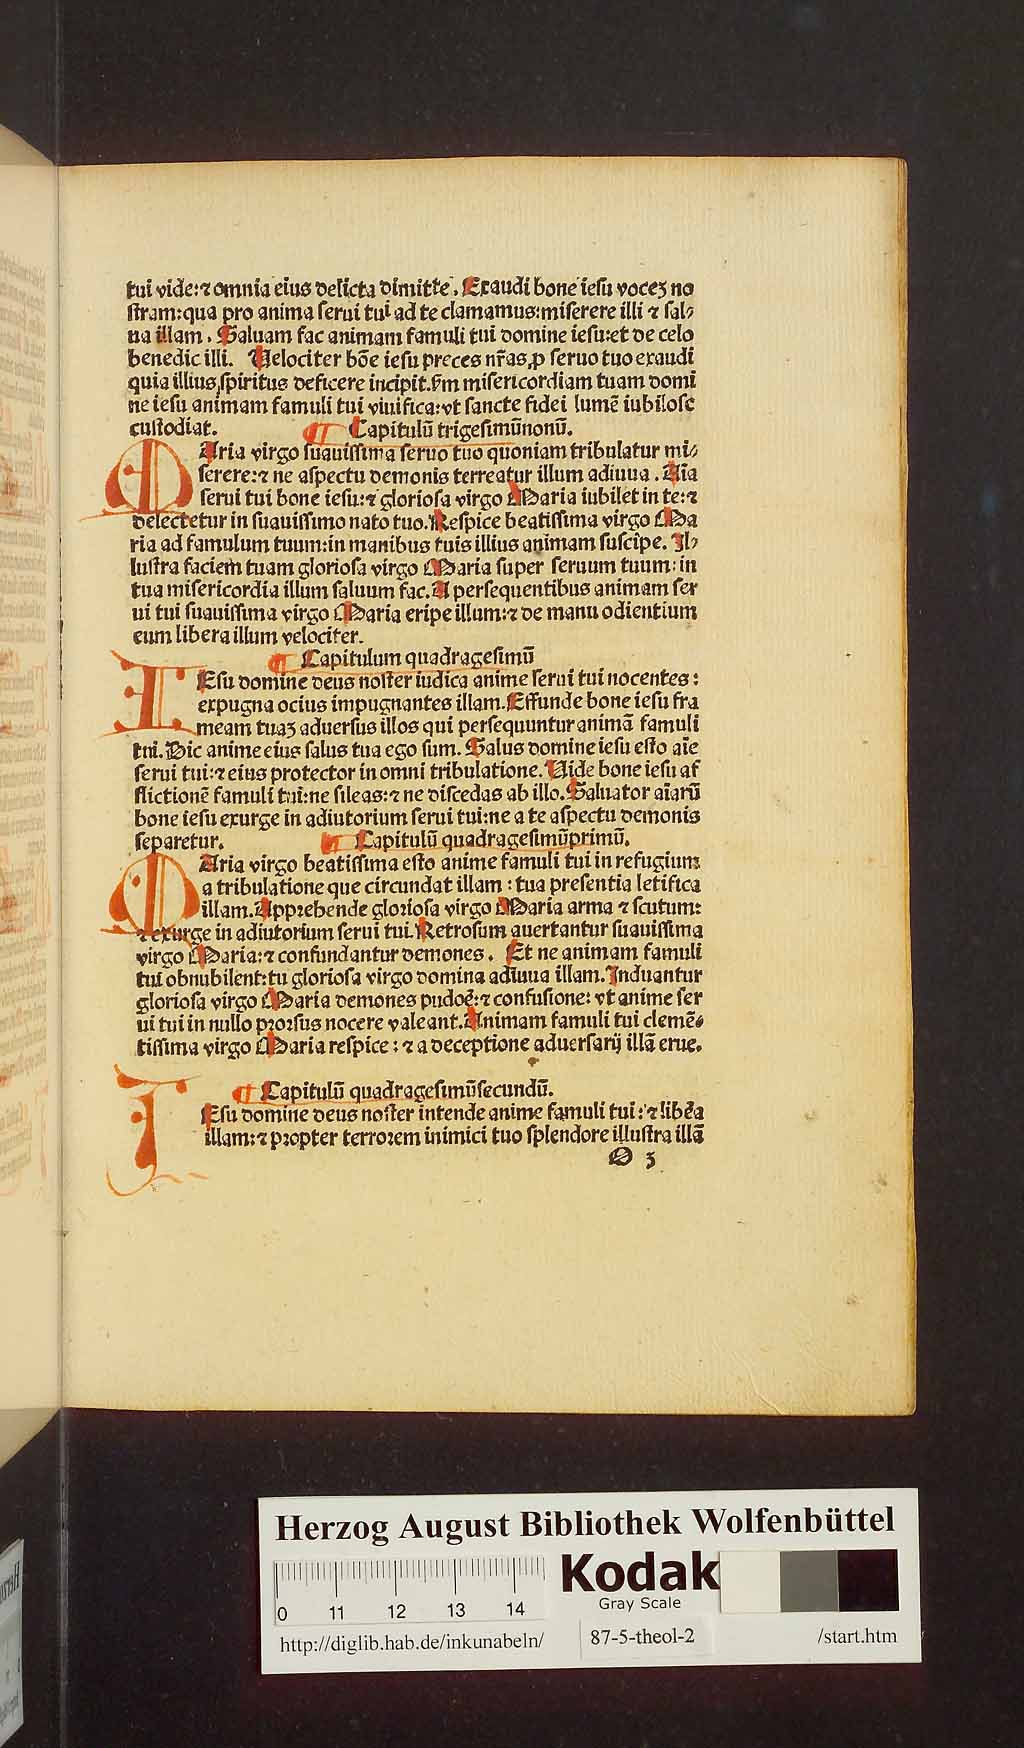 tui vide:⁊ omnia eius delicta dimitte. Exaudi bone iesu voceʒ no
stram:qua pro anima serui tui ad te clamamus:miserere illi ⁊ sal⸗
ua illam. Saluam fac animam famuli tui domine iesu:et de celo
benedic illi. Velociter bōe iesu preces nr̄as ꝓ seruo tuo exaudi
quia illius spiritus deficere incipit. misericordiam tuam domi
ne iesu animam famuli tui viuifica:vt sancte fidei lumē iubilose
custodiat. ¶ Capitulū trigesimūnonū.
MAria virgo suauissima seruo tuo quoniam tribulatur mi⸗
serere:⁊ ne aspectu demonis terreatur illum adiuua. Aīa
serui tui bone iesu:⁊ gloriosa virgo Maria iubilet in te:⁊
delectetur in suauissimo nato tuo. Respice beatissima virgo Ma
ria ad famulum tuum:in manibus tuis illius animam suscipe. Il⸗
lustra faciem tuam gloriosa virgo Maria super seruum tuum: in
tua misericordia illum saluum fac. A persequentibus animam ser
ui tui suauissima virgo Maria eripe illum:⁊ de manu odientium
eum libera illum velociter.
¶ Capitulum quadragesimū
IEsu domine deus noster iudica anime serui tui nocentes:
expugna ocius impugnantes illam. Effunde bone iesu fra
meam tuaʒ aduersus illos qui persequuntur animā famuli
tui. Dic anime eius salus tua ego sum. Salus domine iesu esto aīe
serui tui:⁊ eius protector in omni tribulatione. Vide bone iesu af
flictionē famuli tui:ne sileas:⁊ ne discedas ab illo. Saluator aīarū
bone iesu exurge in adiutorium serui tui:ne a te aspectu demonis
separetur. ¶ Capitulū quadragesimūprimū.
MAria virgo beatissima esto anime famuli tui in refugium
a tribulatione que circundat illam: tua presentia letifica
illam. Apprehende gloriosa virgo Maria arma ⁊ scutum:
⁊ exurge in adiutorium serui tui. Retrosum auertantur suauissima
virgo Maria:⁊ confundantur demones. Et ne animam famuli
tui obnubilent:tu gloriosa virgo domina adiuua illam. Induantur
gloriosa virgo Maria demones pudoē:⁊ confusione: vt anime ser
ui tui in nullo prorsus nocere valeant. Animam famuli tui clemē⸗
tissima virgo Maria respice:⁊ a deceptione aduersarij illā erue.
¶ Capitulū quadragesimūsecundū.
IEsu domine deus noster intende anime famuli tui:⁊ libēa
illam:⁊ propter terrorem inimici tuo splendore illustra illā
O 3
Herzog August Bibliothek Wolfenbüttel
Kodak
Gray Scale
0 11 12 13 14
http://diglib.hab.de/inkunabeln/ 87-5-theol-2 /start.htm